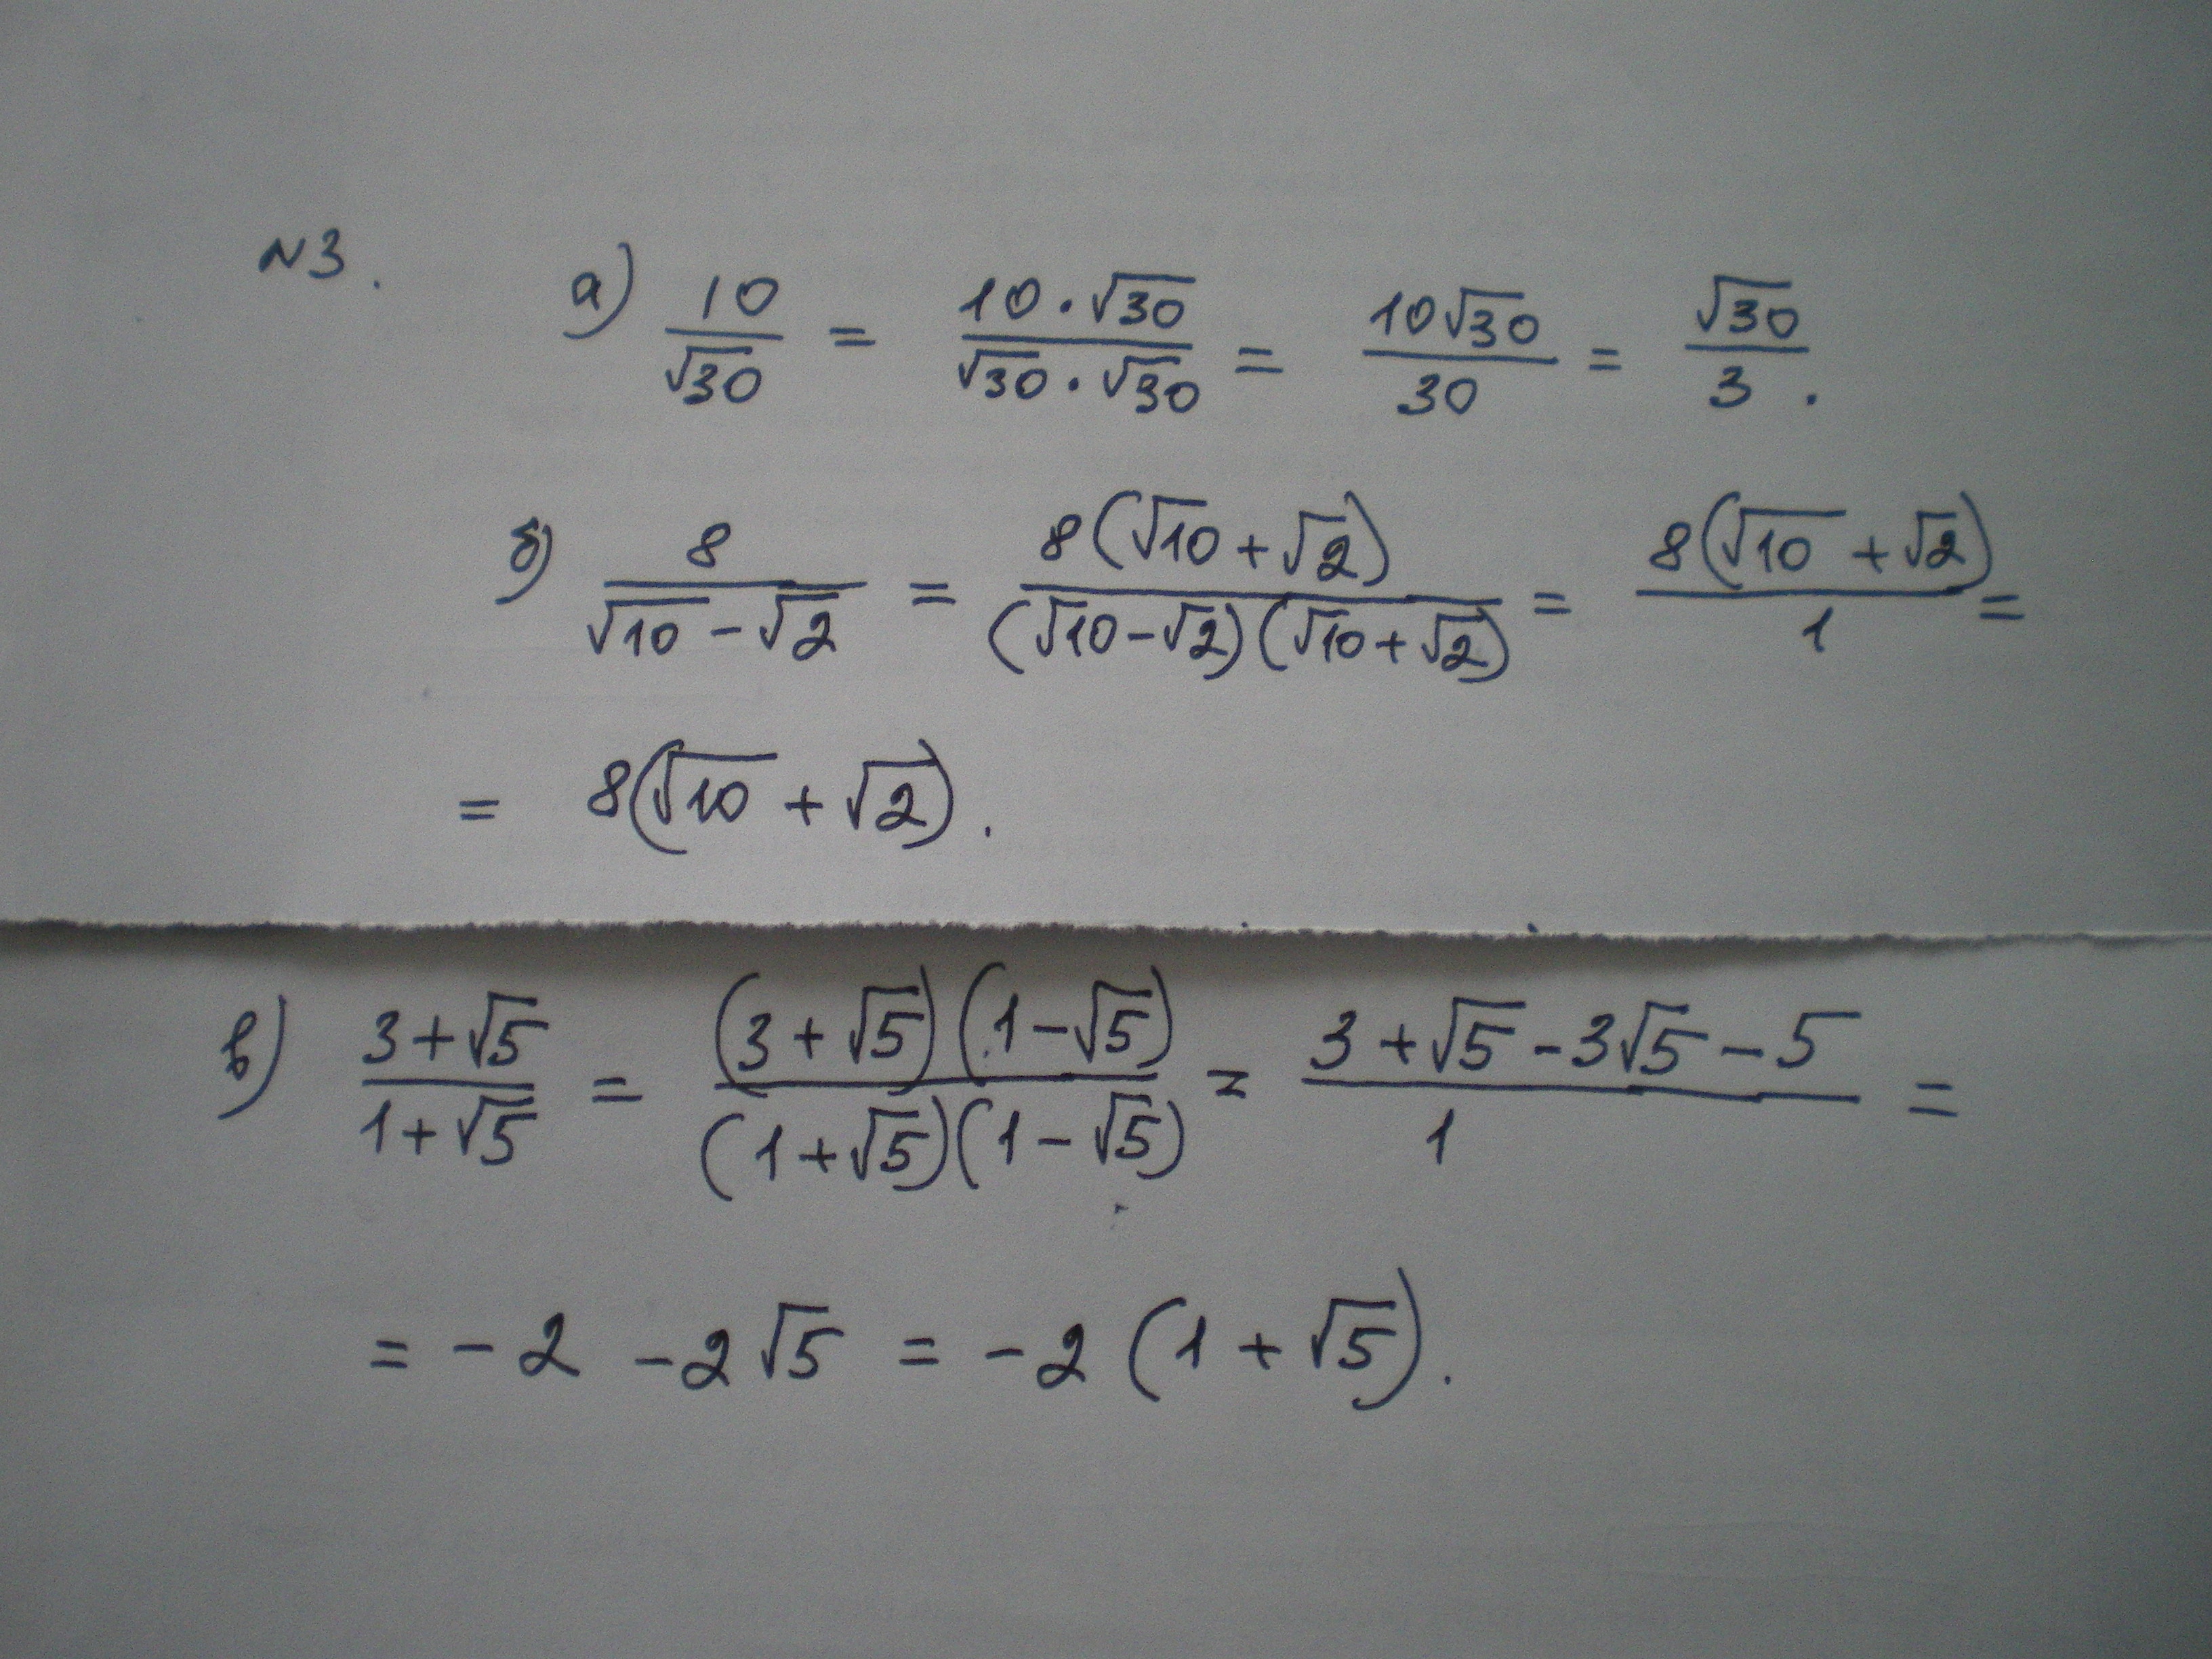 N3. а) 10/√30 = 10·√30/√30·√30 = 10√30/30 = √30/3.
б) 8/√10-√2 = 8(√10+√2)/(√10-√2)(√10+√2) = 8(√10+√2)/1 =
= 8(√10+√2).
в) 3+√5/1+√5 = (3+√5)(1-√5)/(1+√5)(1-√5) = 3+√5-3√5-5/1 =
= -2 -2√5 = -2(1+√5).